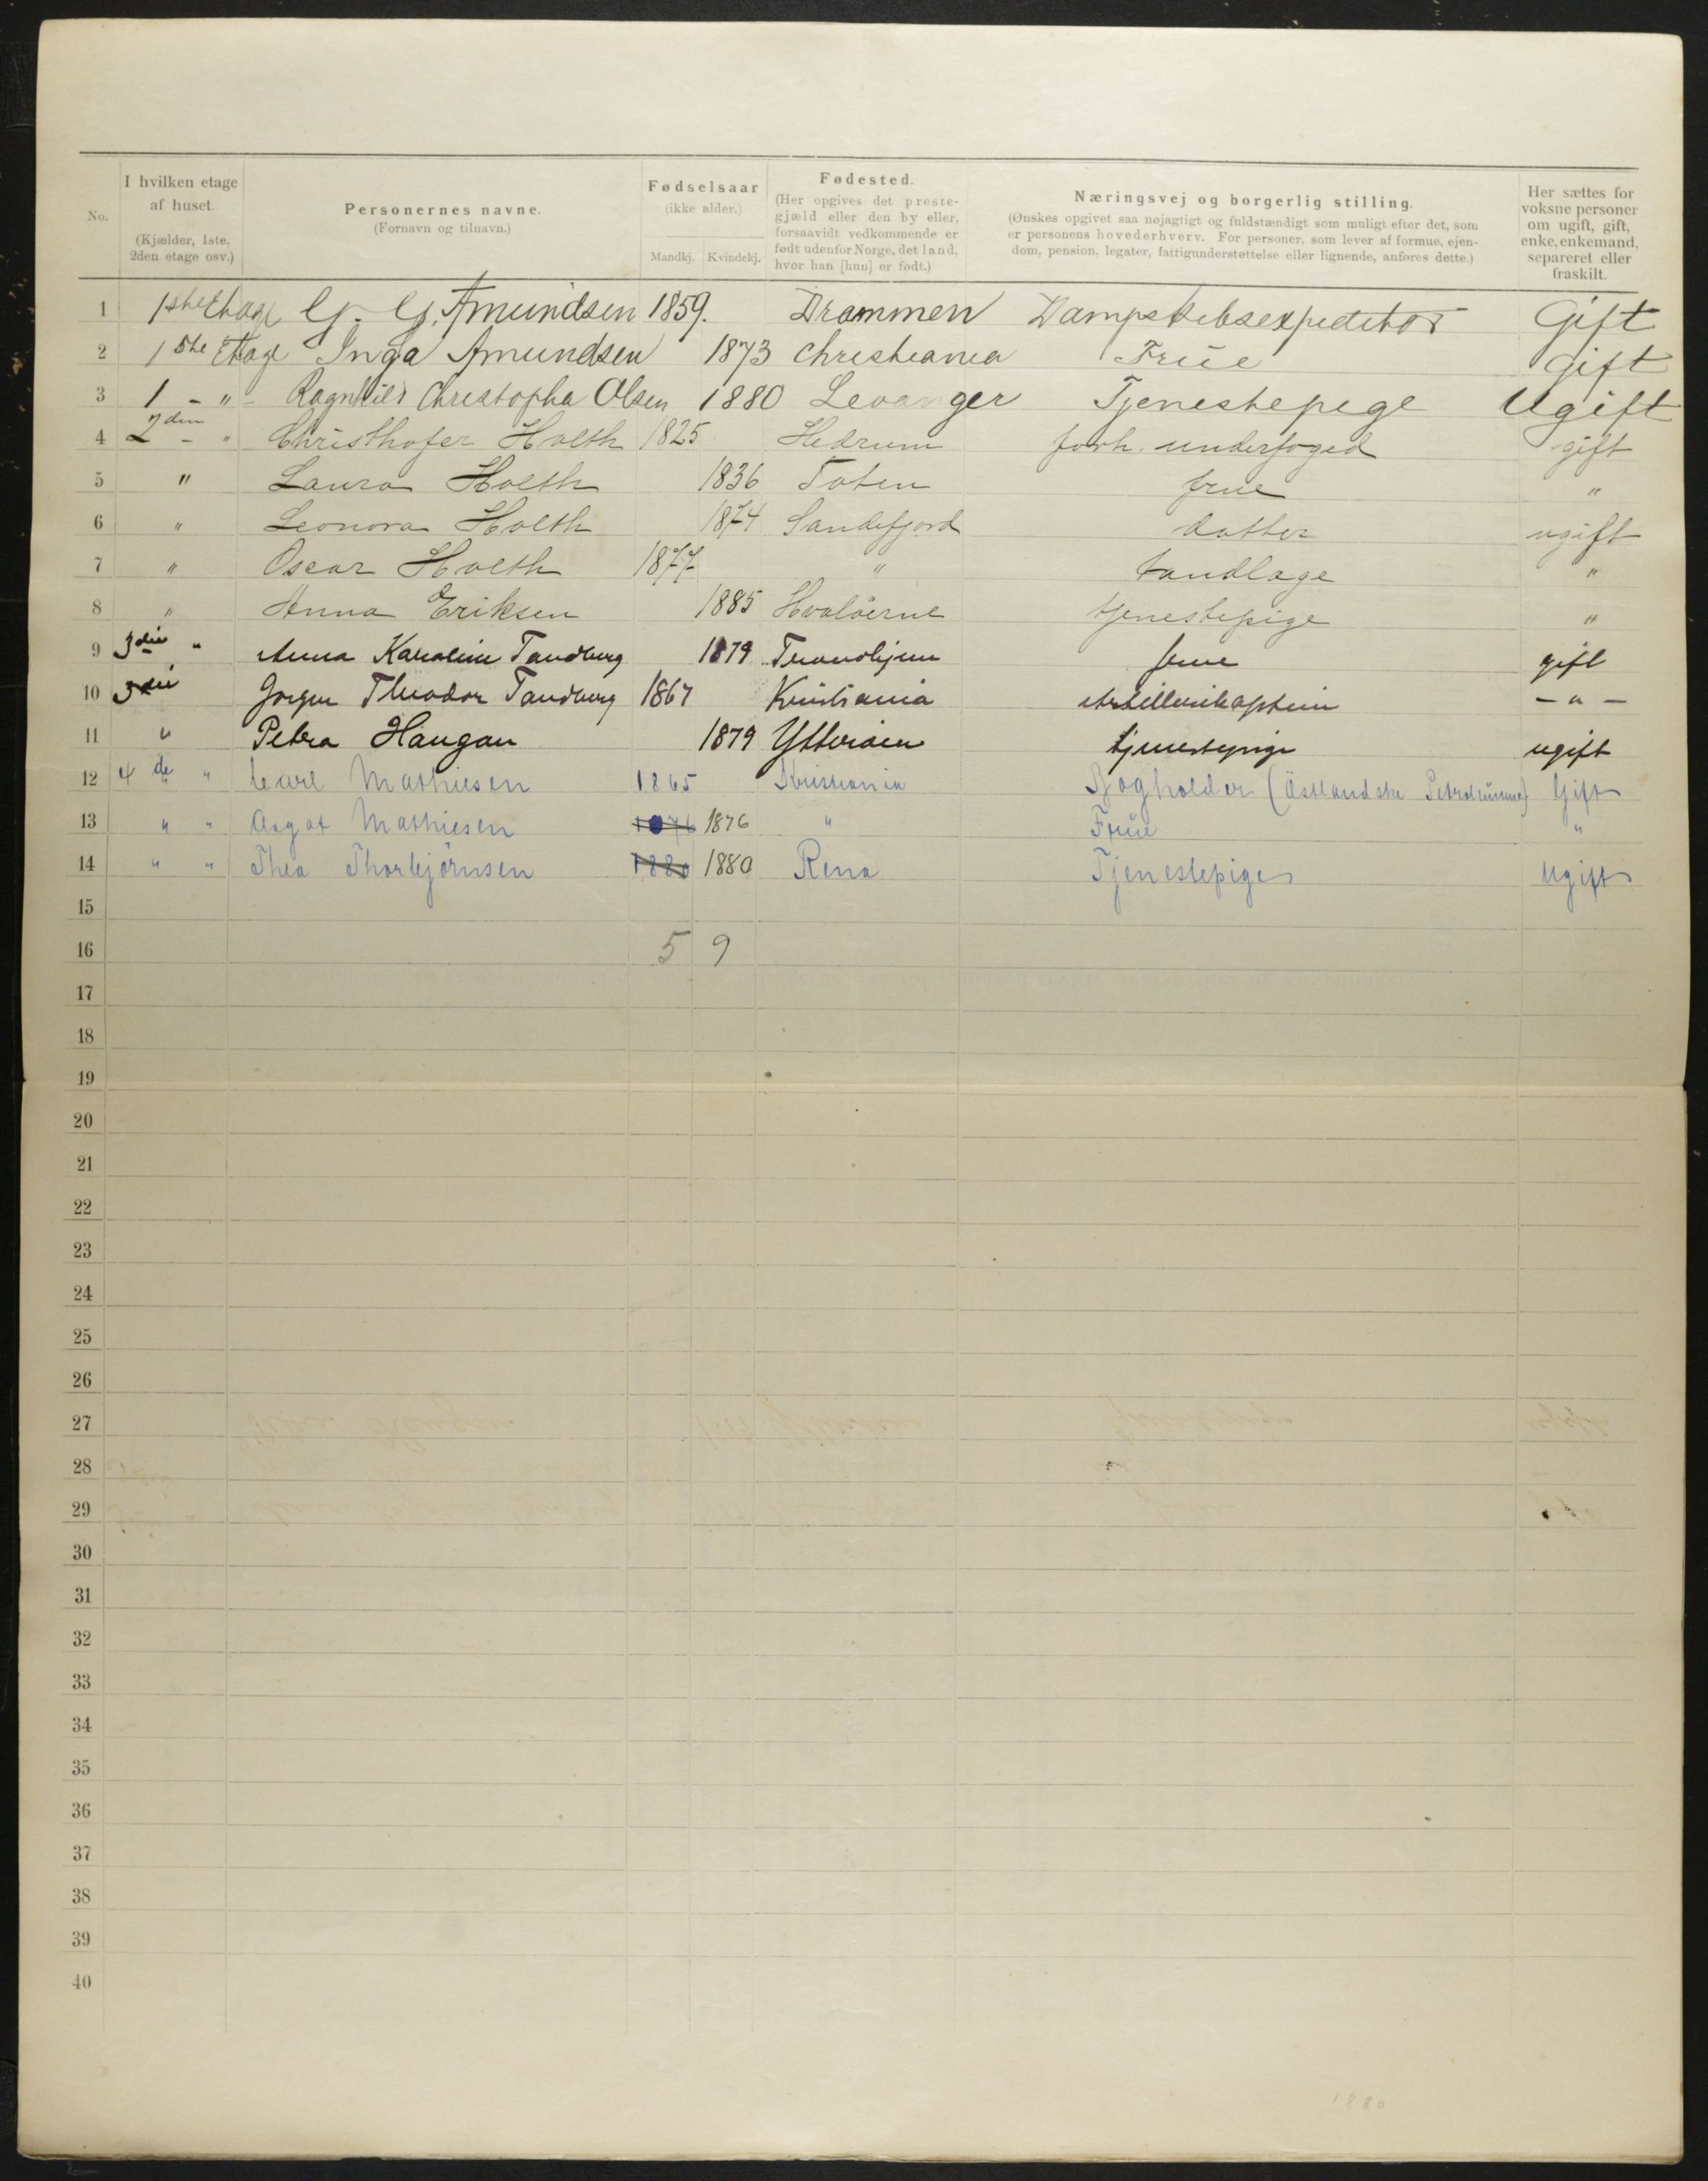 No.
I hvilken etage af huset.
(Kjælder, 1ste, 2den etage osv.)
Personernes navne.
(Fornavn og tilnavn.)
Fødselsaar
(ikke alder.)
Mandkj. Kvindekj.
Fødested.
(Her opgives det preste-
gjæld eller den by eller,
forsaavidt vedkommende er
født udenfor Norge, det land,
hvor han [hun] er født.)
Næringsvej og borgerlig stilling.
(Ønskes opgivet saa nøjagtigt og fuldstændigt som muligt efter det, som
er personens hovederhverv. For personer, som lever af formue, ejen-
dom, pension, legater, fattigunderstøttelse eller lignende, anføres dette.)
Her sættes for
voksne personer
om ugift, gift,
enke, enkemand,
separeret eller
fraskilt.
1 1ste Etage G. G. Amundsen 1859. Drammen Dampskibsexpeditør Gift
2 1ste Etage Inga Amundsen 1873 Christiania Frue Gift
3 1 - " - Ragnhild Christopha Olsen 1880 Levanger Tjenestepige Ugift
4 2den - " Christhofer Holth 1825 Hedrum forh. underfoged gift
5 " Laura Holth 1836 Toten frue "
6 " Leonora Holth 1874 Sandefjord datter ugift
7 " Oscar Holth 1877 " tandlæge "
8 " Anna Eriksen 1885 Hvaløerne tjenestepige "
9 3die " Anna Karoline Tandberg 1879 Trondhjem frue gift
10 3die Jørgen Theodor Tandberg 1867 Kristiania Artillerikaptein - " -
11 " Petra Haugan 1879 Ytterøen tjenestepige ugift
12 4de " Carl Mathiesen 1865 Kristiania Bogholder (Østlandske Petroleumsco) Gift
13 " " Aagot Mathiesen 1876 1876 " Frue "
14 " " Thea Thorbjørnsen 1880 1880 Rena Tjenestepige Ugift
15
16 5 9
17
18
19
20
21
22
23
24
25
26
27
28
29
30
31
32
33
34
35
36
37
38
39
40
1880